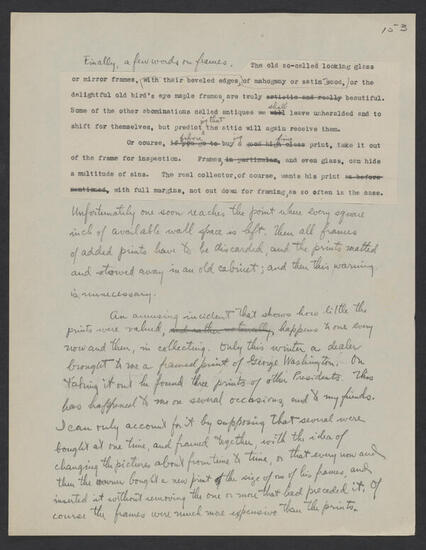 153
Finally, a few words on frames. The old so-called looking glass
or mirror frames, (with their beveled edges) of mahogany or satin wood, or the
delightful old bird's eye maple frames, are truly artistic and really beautiful.
Some of the other abominations called antiques we will shall leave unheralded and to
shift for themselves, but predict that the attic will again receive them.
Of course, if you go to before buy ing a good high class fine print, take it out
of the frame for inspection. Frames, in particular, and even glass, can hide
a multitude of sins. The real collector, of course, wants his print as before
mentioned, with full margins, not cut down for framing, as so often is the case.
Unfortunately one soon reaches the point where every square
inch of available wall space is left. Then all frames
of added prints have to be discarded, and the prints matted
and stowed away in an old cabinet; and then this warning
is unnecessary.
An amusing incident that shows how little the
prints were valued, and rather naturally, happens to one every
now and then, in collecting. Only this winter a dealer
brought to me a framed print of George Washington. On
taking it out he found three prints of other Presidents. This
has happened to me on several occasions, and to my friends.
I can only account for it by supposing that several were
bought at one time, and framed together, with the idea of
changing the pictures about from time to time, or that every now and
then the owner bought a new print of the size of one of his frames, and
inserted it without removing the one or more that had preceded it. Of
course the frames were much more expensive than the prints.